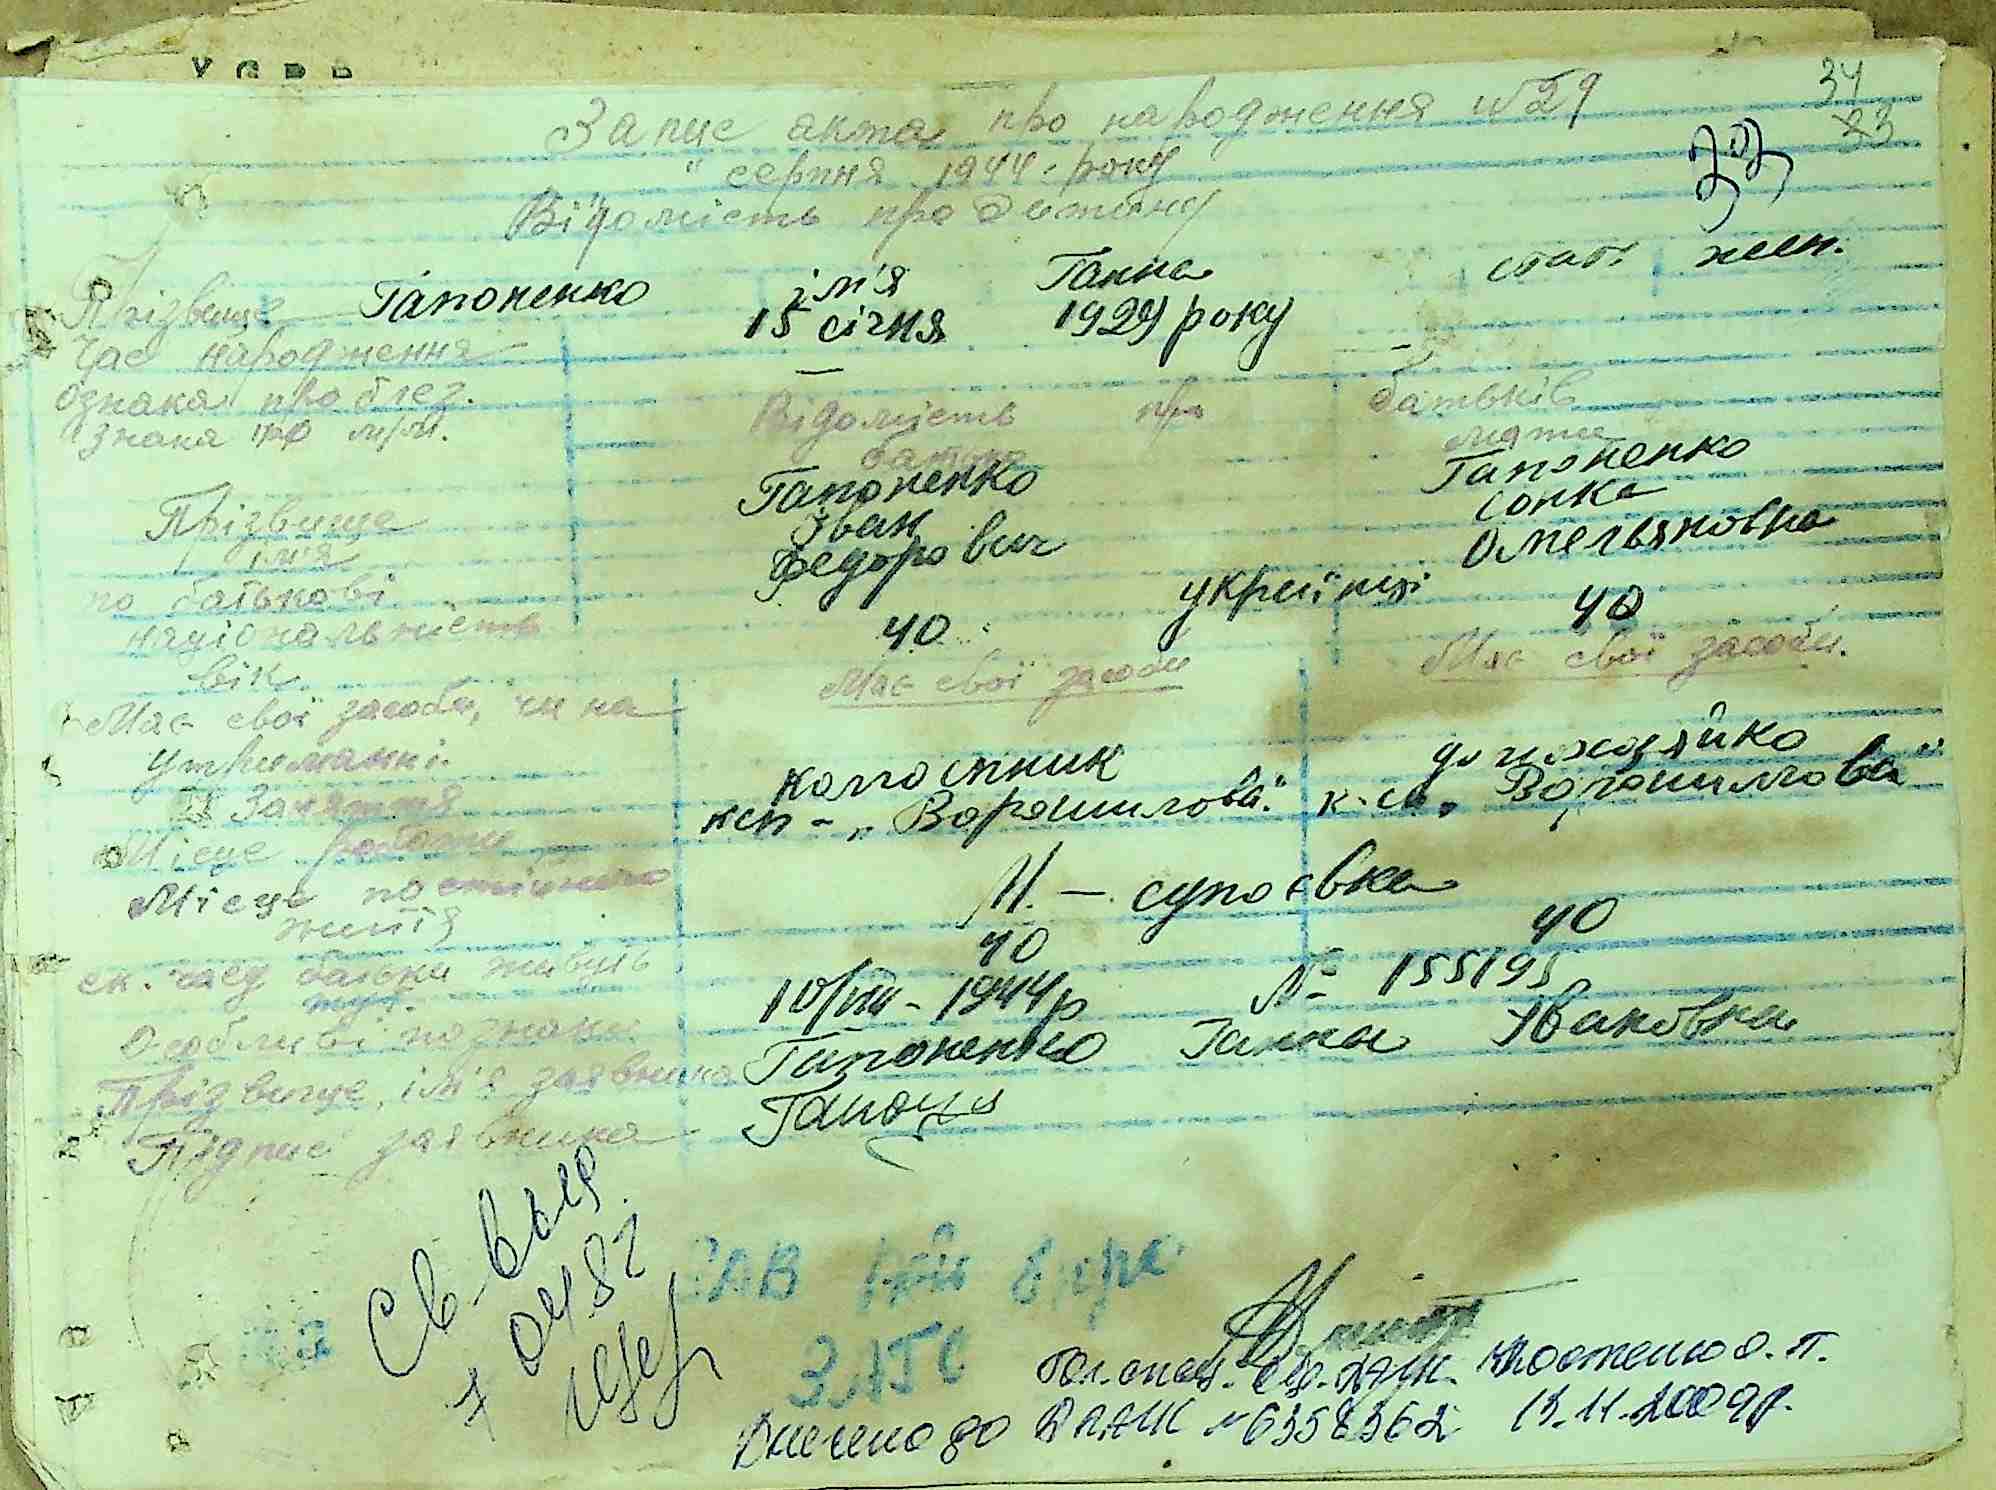 УСРР
34
23
Запис акта про народження №29
" серпня 1944 року
Відомість про дитину
Прізвище Гапоненко ім'я Ганна стать жен.
Час народження 15 січня 1929 року
ознака про близ.
знака про м/м.
Відомість про батьків
батько мати
Прізвище Гапоненко Гапоненко
ім'я Іван Сонка
по батькові Федорович Омельяновна
національність українці
вік 40 40
Має свої засоби, чи на утриманні. Має свої засоби Має свої засоби.
Заняття колгоспник домохазяйка
Місце роботи ксп - „Ворошилова" к-сп „Ворошилова"
Місце постійного життя М. - супоєвка
ск. часу батьки живуть тут. 40 40
Особливі познаки 10/VIII - 1944р № 155195
Прізвище, ім'я заявника Гапоненко Ганна Івановна
Підпис заявника Гапон
Св. выд.
04 82
ЗАВ бюро
ЗАГС
Гол. спец. від. ДРАЦС Костенко О. П.
Внесено до ДРАЦС № 6358362 13.11.2009р.